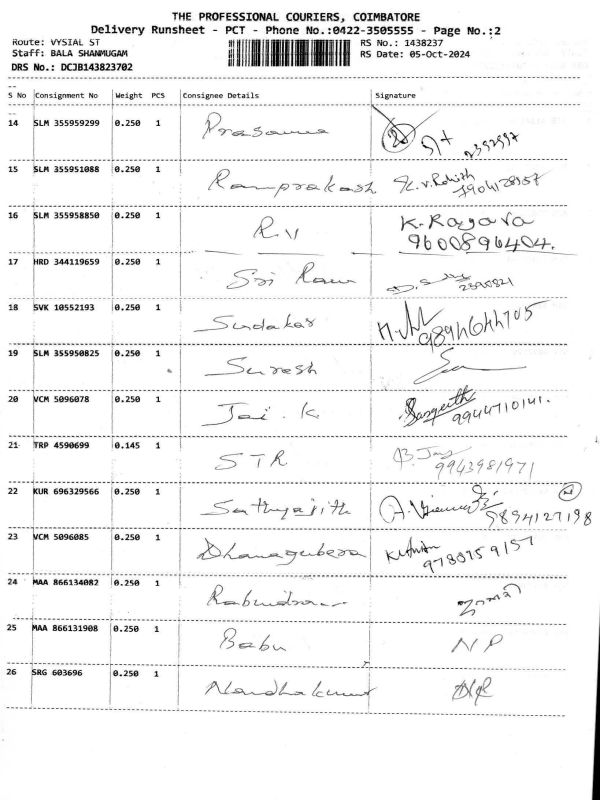 THE PROFESSIONAL COURIERS, COIMBATORE
Delivery Runsheet - PCT - Phone No.:0422-3505555 - Page No.:2
Route: VYSIAL ST RS No.: 1438237
Staff: BALA SHANMUGAM RS Date: 05-Oct-2024
DRS No.: DCJB143823702
S No Consignment No Weight PCS Consignee Details Signature
14 SLM 355959299 0.250 1 Prasanna
15 SLM 355951088 0.250 1 Ramprakash
16 SLM 355958850 0.250 1 R.V K.Ragava
9600896404.
17 HRD 344119659 0.250 1 Sri Ram
18 SVK 10552193 0.250 1 Sudakar
9894644705
19 SLM 355950825 0.250 1 Suresh
20 VCM 5096078 0.250 1 Jai . K
9944710141.
21 TRP 4590699 0.145 1 STR
9943981971
22 KUR 696329566 0.250 1 Sathyajith
9894127198
23 VCM 5096085 0.250 1
9780759157
24 MAA 866134082 0.250 1
25 MAA 866131908 0.250 1 Babu NP
26 SRG 603696 0.250 1 Nandhakumar